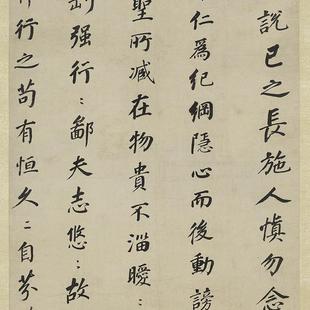 說已之長施人慎勿念
仁爲紀綱隱心而後動謗
聖所臧在物貴不淄曖〻
剛强行〻鄙夫志悠〻故
行之苟有恒久〻自芬